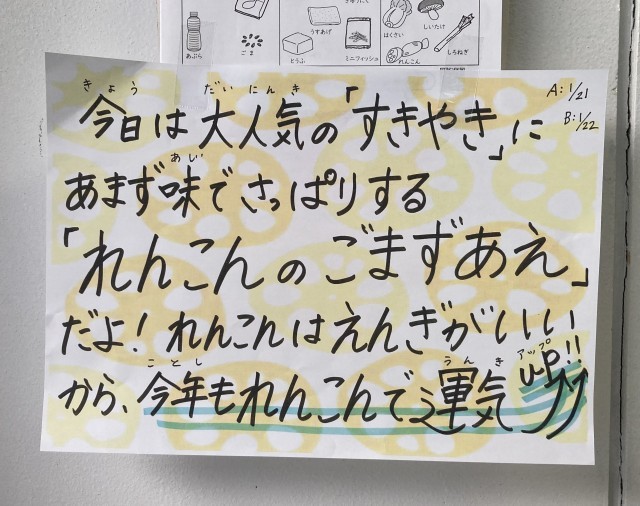 あぶら
ごま
うすあげ
とうふ
ミニフィッシュ
はくさい
しいたけ
れんこん
しろねぎ
A:1/21
B:1/22
きょう だいにんき
今日は大人気の「すきやき」に
あじ
あまず味でさっぱりする
「れんこんのごまずあえ」
だよ！れんこんはえんぎがいい
ことし うんき アップ
から、今年もれんこんで運気up!!